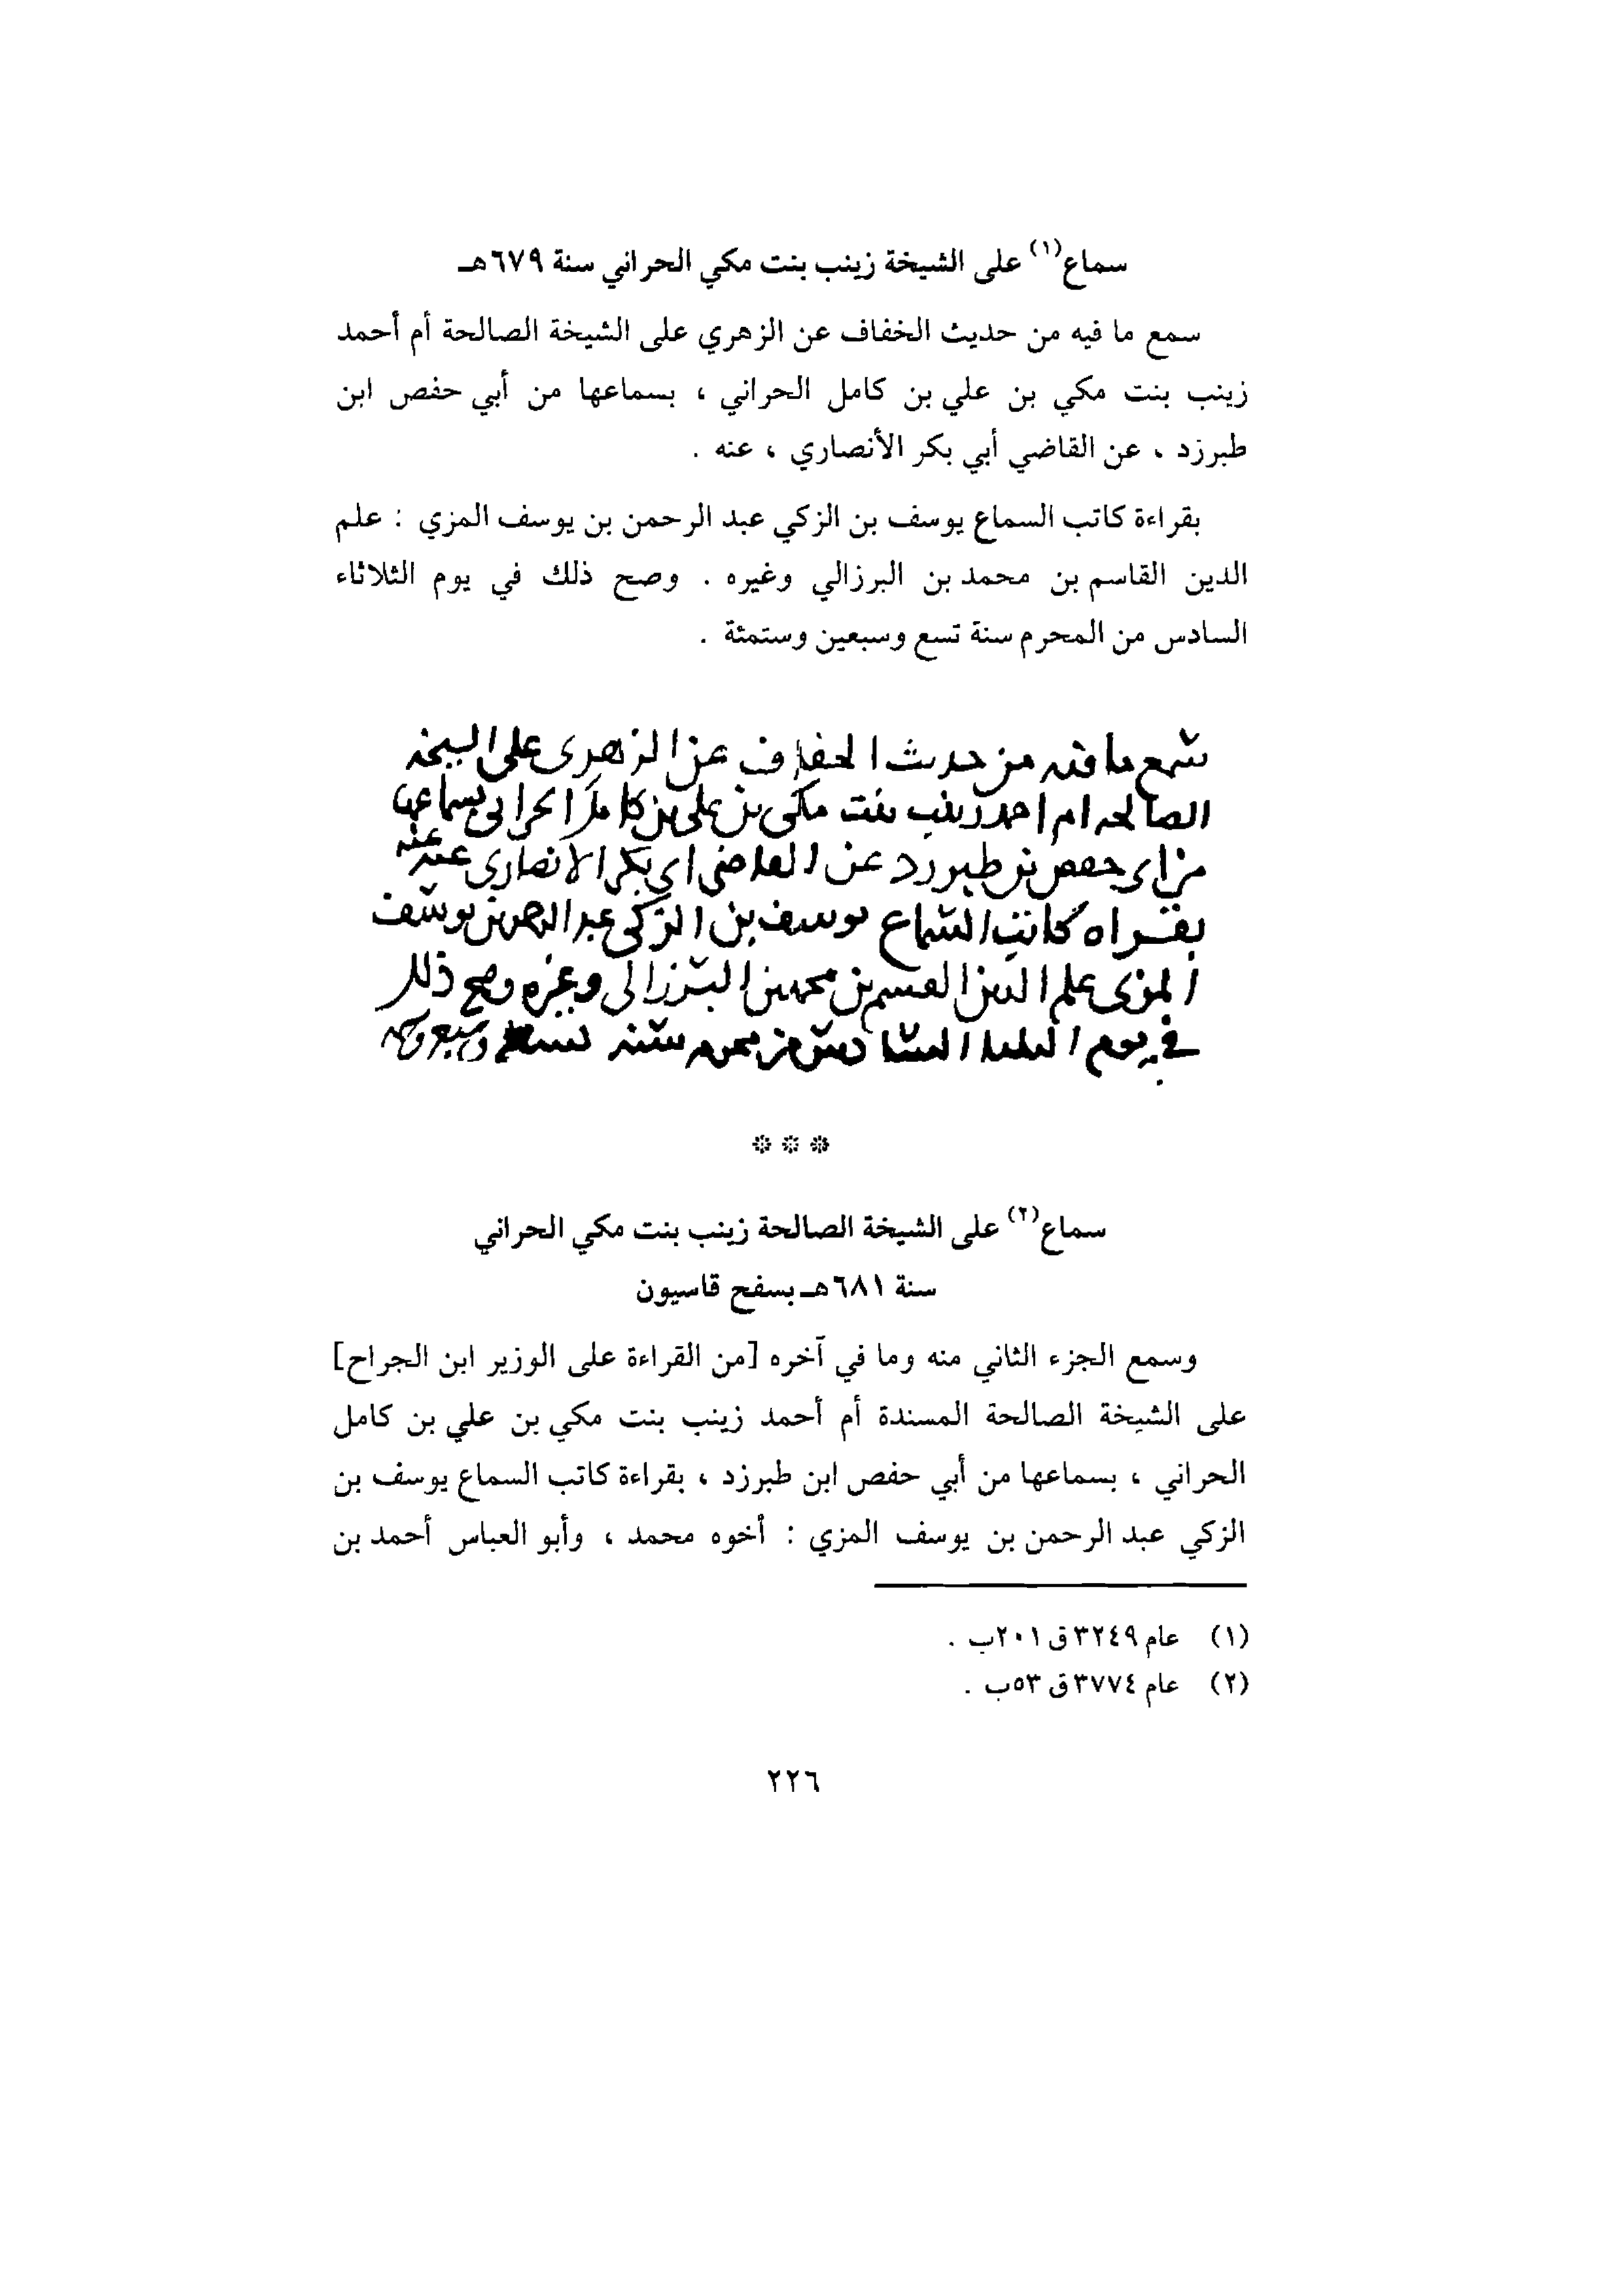 سماع(١) على الشيخة زينب بنت مكي الحراني سنة ٦٧٩هـ
سمع ما فيه من حديث الخفاف عن الزهري على الشيخة الصالحة أم أحمد
زينب بنت مكي بن علي بن كامل الحراني ، بسماعها من أبي حفص ابن
طبرزد ، عن القاضي أبي بكر الأنصاري ، عنه .
بقراءة كاتب السماع يوسف بن الزكي عبد الرحمن بن يوسف المزي : علم
الدين القاسم بن محمد بن البرزالي وغيره . وصح ذلك في يوم الثلاثاء
السادس من المحرم سنة تسع وسبعين وستمئة .
سمع ما فيه من حديث الخفاف عن الزهري على الشيخة
الصالحه ام احمد زينب بنت مكي بن علي بن كامل الحراني بسماعها
من ابي حفص بن طبرزد عن القاضي ابي بكر الانصاري عنه
بقراه كاتب السماع يوسف بن الزكي عبد الرحمن بن يوسف
المزي علم الدين القسم بن محمد بن البرزالي وغيره وصح ذلك
في يوم الثلثا السادس من محرم سنه تسع وسبعين
*** 
سماع(٢) على الشيخة الصالحة زينب بنت مكي الحراني
سنة ٦٨١هـ بسفح قاسيون
وسمع الجزء الثاني منه وما في آخره [من القراءة على الوزير ابن الجراح]
على الشيخة الصالحة المسندة أم أحمد زينب بنت مكي بن علي بن كامل
الحراني ، بسماعها من أبي حفص ابن طبرزد ، بقراءة كاتب السماع يوسف بن
الزكي عبد الرحمن بن يوسف المزي : أخوه محمد ، وأبو العباس أحمد بن
(١) عام ٣٢٤٩ ق ٢٠١ب .
(٢) عام ٣٧٧٤ ق ٥٣ب .
٢٢٦